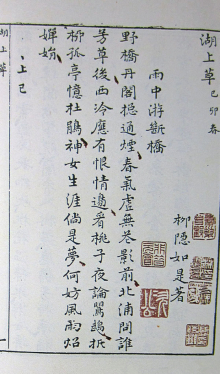 湖上草 己卯春
柳隱如是著
雨中游斷橋
野橋丹閣總通煙春氣虛無花影前北浦問誰
芳草後西泠應有恨情邊看桃子夜論鸚鵡折
柳孤亭憶杜鵑神女生涯倘是夢何妨風雨炤
嬋娟
上巳
湖上草